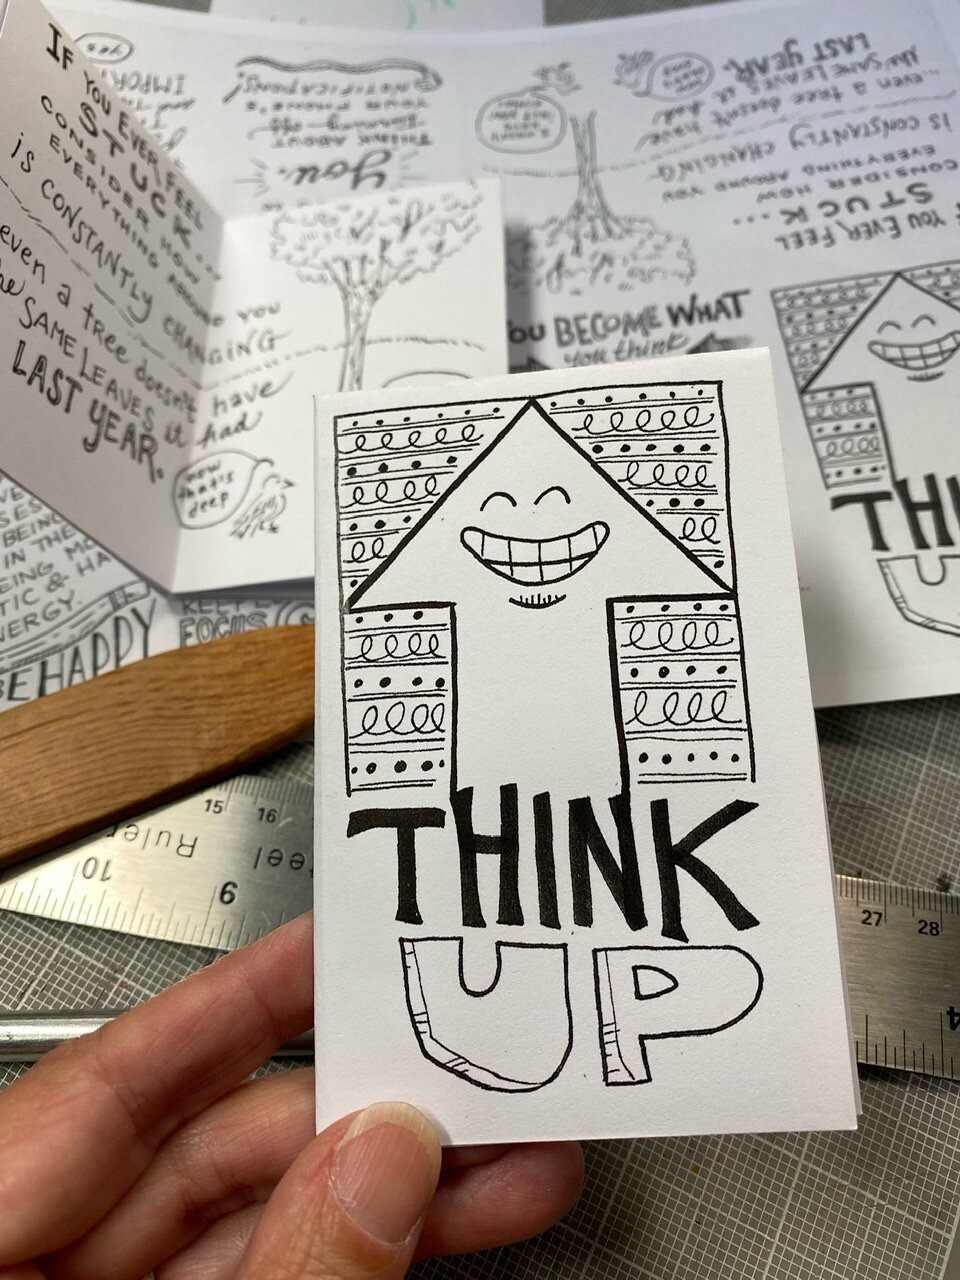 THINK
UP
IF YOU EVER FEEL
STUCK...
CONSIDER HOW
EVERYTHING AROUND YOU
is CONSTANTLY CHANGING
even a tree doesn't have
the SAME LEAVES it had
LAST YEAR.
wow
that is
deep
yes
NOTIFICATIONS!
YOUR PHONE'S
turning off
THINK ABOUT
you.
LAST YEAR.
the SAME LEAVES it had
...even a tree doesn't have
is CONSTANTLY CHANGING
EVERYTHING AROUND YOU
CONSIDER HOW
STUCK...
IF YOU EVER FEEL
YOU BECOME WHAT
you think
BEING
IN THE
ENERGY.
BE HAPPY
KEEP
FOCUS
THIN
U
15 16
Ruler
Steel
10 9
27 28